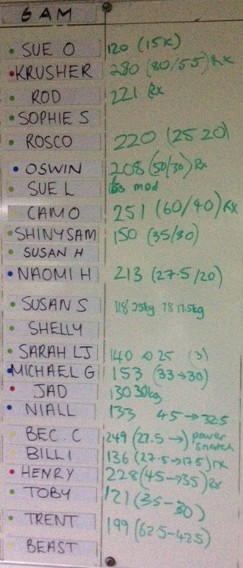 6 AM
SUE O 120 (15K)
KRUSHER 280 (80/55) Rx
ROD 221 Rx
SOPHIE S
ROSCO 220 (25 20)
OSWIN 208 (50/30) Rx
SUE L mod
CAMO 251 (60/40) Rx
SHINYSAM 150 (35/30)
SUSAN H
NAOMI H 213 (27.5/20)
SUSAN S 118 25kg 78 17.5kg
SHELLY
SARAH LJ 140 @ 25 (3)
MICHAEL G 153 (33→30)
JAD 130 30kg
NIALL 133 45→32.5
BEC. C 249 (27.5→) power snatch
BILLI 136 (27.5→17.5) rx
HENRY 228 (45→35) Rx
TOBY 121 (35-30)
TRENT 199 (62.5-42.5)
BEAST